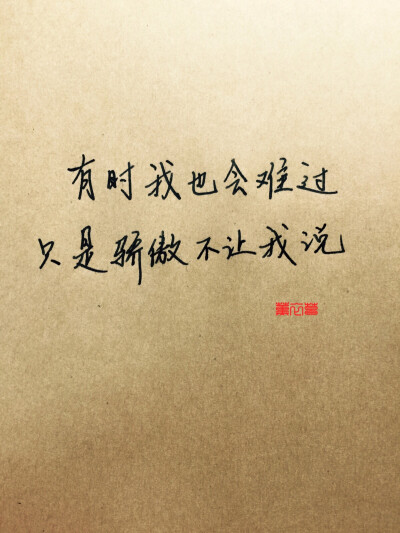 有时我也会难过
只是骄傲不让我说